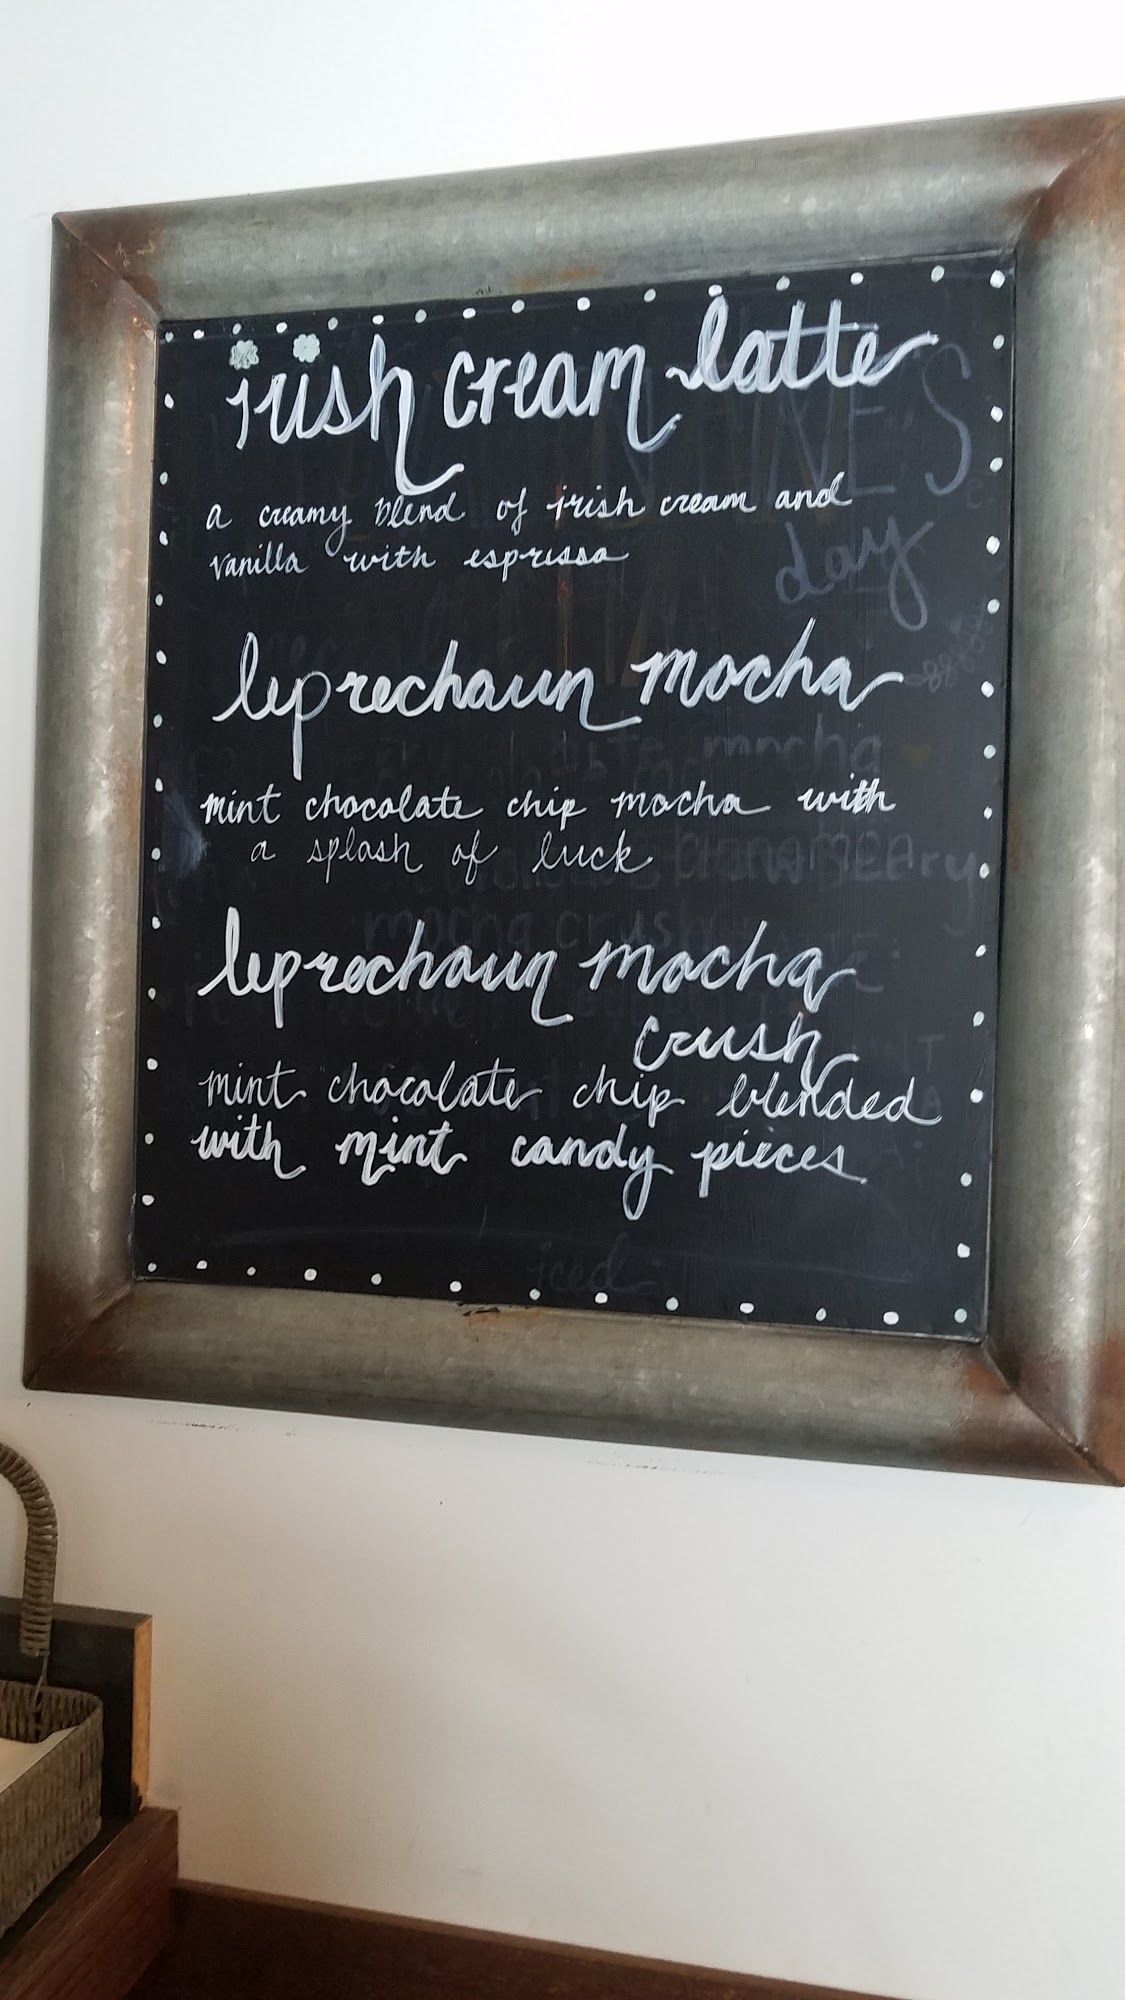 irish cream latte
a creamy blend of irish cream and
vanilla with espresso
leprechaun mocha
mint chocolate chip mocha with
a splash of luck
leprechaun mocha
crush
mint chocolate chip blended
with mint candy pieces
NE'S
day
mocha
mocha crush
iced